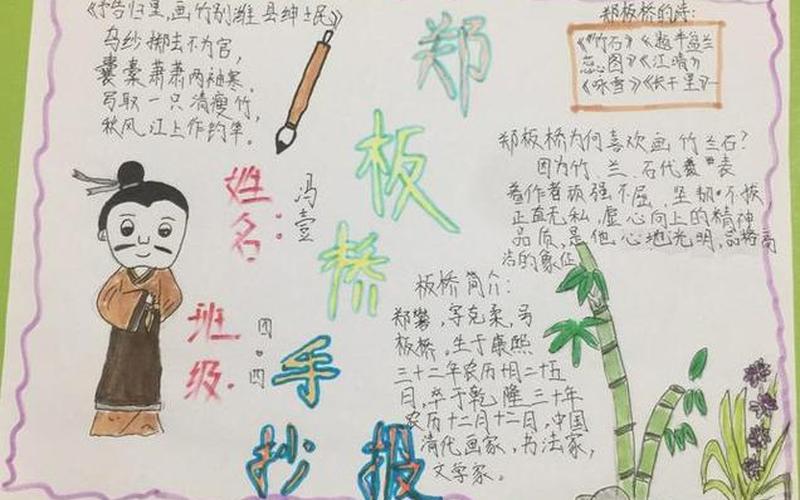 《予告归里,画竹别潍县绅士民》
乌纱掷去不为官,
囊橐萧萧两袖寒,
写取一只清瘦竹,
秋风江上作钓竿。
郑板桥
手抄报
姓名:冯壹
班级.
郑板桥的诗:
《竹石》《题半盆兰
蕊图》《江晴》
《咏雪》《长干里》
郑板桥为何喜欢画竹兰石?
因为竹、兰、石代表
着作者顽强不屈,坚韧不拔
正直无私,虚心向上的精神
品质,是他心地光明,品格高
洁的象征
板桥简介:
郑燮,字克柔,号
板桥,生于康熙
三十二年农历十月二十五
日,卒于乾隆三十年
农历十二月十二日,中国
清代画家,书法家,
文学家。